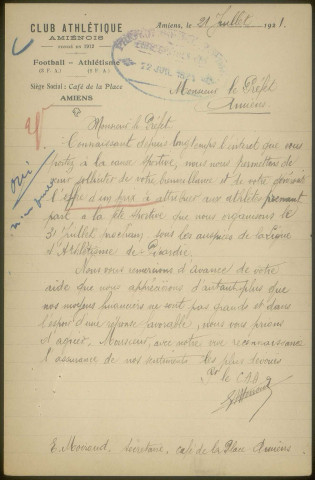 CLUB ATHLÉTIQUE
AMIÉNOIS
FONDÉ EN 1912
Football - Athlétisme
(F. F. A.) (F. F. A.)
Siège Social : Café de la Place
AMIENS
Amiens, le 21 Juillet 1921.
22 JUIL 1921
Monsieur le Préfet
Amiens
oui
Monsieur le Préfet
Connaissant depuis longtemps l'intérêt que vous
portez à la cause sportive, nous nous permettons de
venir solliciter de votre bienveillance et de votre générosité
l'offre d'un prix à attribuer aux athlètes prenant
part à la fête sportive que nous organisons le
31 Juillet prochain, sous les auspices de la Ligue
d'Athlétisme de Picardie.
Nous vous remercions d'avance de votre
aide que nous apprécierons d'autant plus que
nos moyens financiers ne sont pas grands et dans
l'espoir d'une réponse favorable, nous vous prions
d'agréer, Monsieur, avec notre vive reconnaissance
l'assurance de nos sentiments les plus dévoués
Pr le C.A.A.
E. Moirend, Secrétaire, café de la Place Amiens